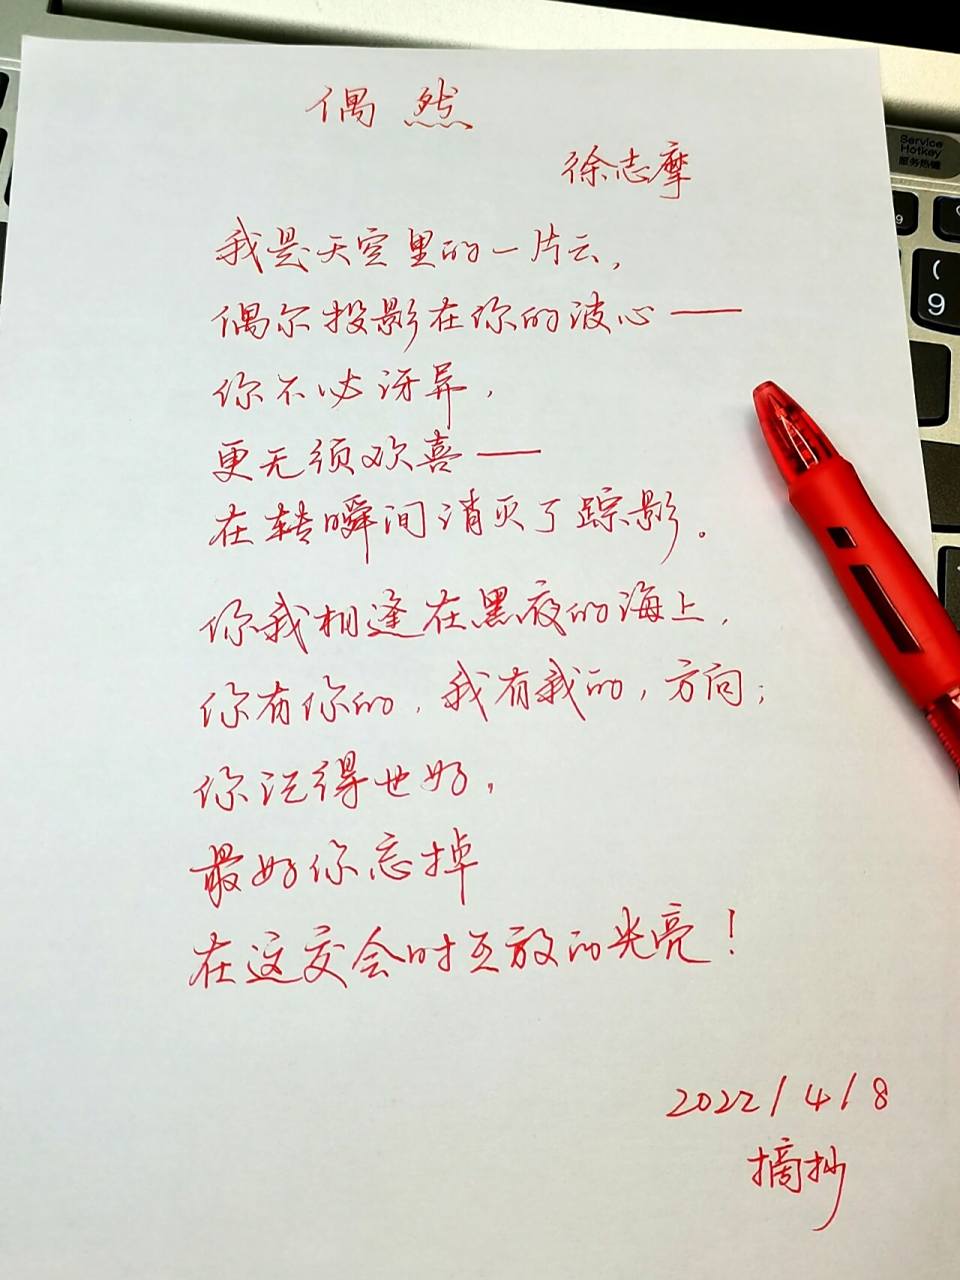 偶然
徐志摩
我是天空里的一片云，
偶尔投影在你的波心——
你不必讶异，
更无须欢喜——
在转瞬间消灭了踪影。
你我相逢在黑夜的海上，
你有你的，我有我的，方向；
你记得也好，
最好你忘掉
在这交会时互放的光亮！
2022/4/8
摘抄
Service
Hotkey
服务热键
9
(
9